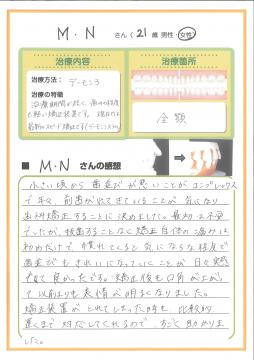 M・N さん（21歳 男性・女性）
治療内容
治療箇所
治療方法： デーモン3
治療の特徴
治療期間が短く、痛みの程度
も軽い矯正装置です。現在では
最新のスピード矯正です（デーモンシステム）
全顎
■ M・N さんの感想
小さい頃から歯並びが悪いことがコンプレックス
で年々、前歯がずれてきていることが気になり
歯科矯正することに決めました。最初は不安
でしたが、抜歯することなく矯正自体の痛みは
初めだけで、慣れてくると気にならない程度で
歯並びもきれいになっていくことが日々実感
できて良かったです。矯正後も口角が上がっ
て以前よりも表情が明るくなりました。
矯正装置がとれてしまった時も比較的
遅くまで対応してくれるので、すごく助かりま
した。